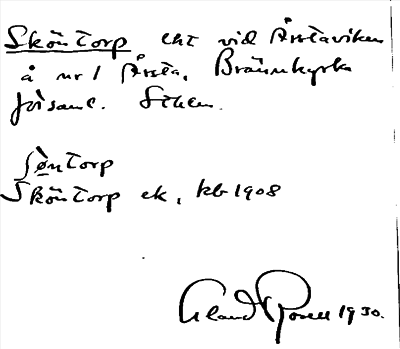 Sköntorp lht vid Årstaviken
å nr 1 Årsta, Brännkyrka
församl. Sthlm.
Söntorp
Sköntorp ek, kb 1908
Rosell 1930.